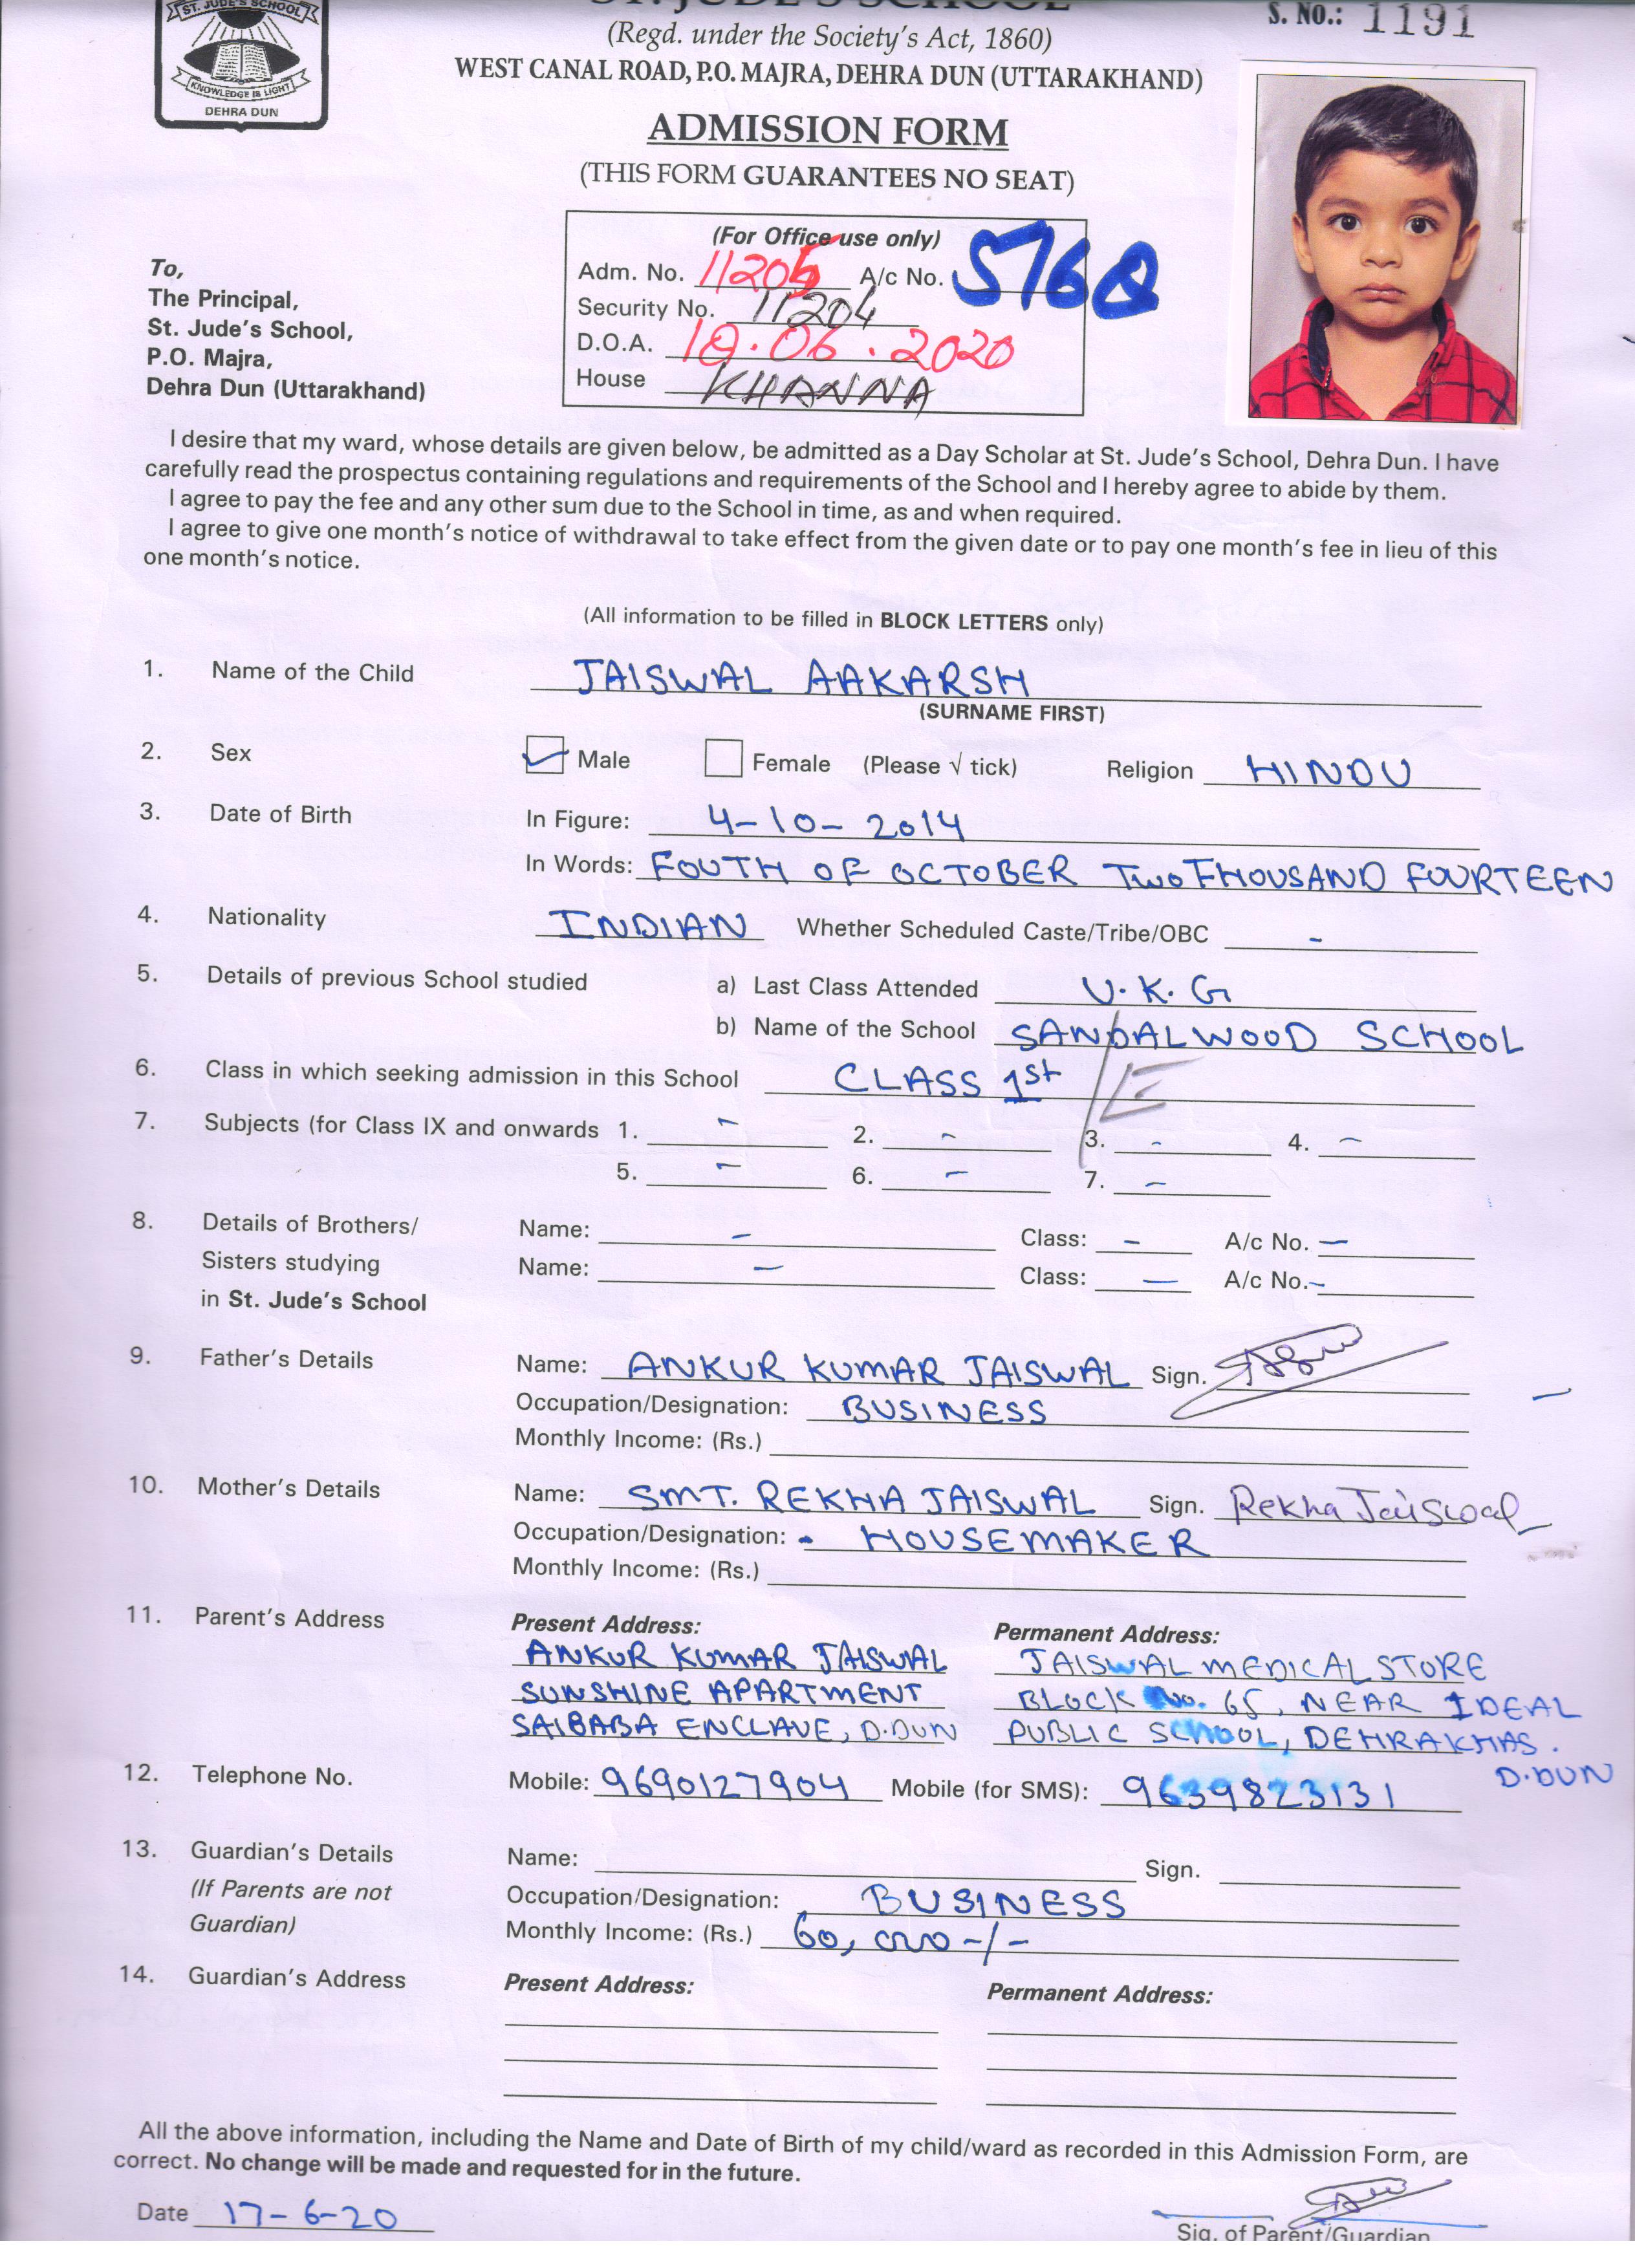 ST. JUDE'S SCHOOL
KNOWLEDGE IS LIGHT
DEHRA DUN
ST. JUDE'S SCHOOL
S. NO.: 1191
(Regd. under the Society's Act, 1860)
WEST CANAL ROAD, P.O. MAJRA, DEHRA DUN (UTTARAKHAND)
ADMISSION FORM
(THIS FORM GUARANTEES NO SEAT)
(For Office use only)
Adm. No. 11205 A/c No. 5768
Security No. 11204
D.O.A. 18.06.2020
House KHANNA
To,
The Principal,
St. Jude's School,
P.O. Majra,
Dehra Dun (Uttarakhand)
I desire that my ward, whose details are given below, be admitted as a Day Scholar at St. Jude's School, Dehra Dun. I have
carefully read the prospectus containing regulations and requirements of the School and I hereby agree to abide by them.
I agree to pay the fee and any other sum due to the School in time, as and when required.
I agree to give one month's notice of withdrawal to take effect from the given date or to pay one month's fee in lieu of this
one month's notice.
(All information to be filled in BLOCK LETTERS only)
1. Name of the Child JAISWAL AAKARSH
(SURNAME FIRST)
2. Sex ✓ Male Female (Please √ tick) Religion HINDU
3. Date of Birth In Figure: 4-10-2014
In Words: FOUTH OF OCTOBER TWO THOUSAND FOURTEEN
4. Nationality INDIAN Whether Scheduled Caste/Tribe/OBC -
5. Details of previous School studied a) Last Class Attended U.K.G
b) Name of the School SANDALWOOD SCHOOL
6. Class in which seeking admission in this School CLASS 1st / E
7. Subjects (for Class IX and onwards 1. - 2. - 3. - 4. -
5. - 6. - 7. -
8. Details of Brothers/ Name: - Class: - A/c No. -
Sisters studying Name: - Class: - A/c No. -
in St. Jude's School
9. Father's Details Name: ANKUR KUMAR JAISWAL Sign.
Occupation/Designation: BUSINESS
Monthly Income: (Rs.)
10. Mother's Details Name: SMT. REKHA JAISWAL Sign. Rekha Jaiswal
Occupation/Designation: - HOUSEMAKER
Monthly Income: (Rs.)
11. Parent's Address Present Address: Permanent Address:
ANKUR KUMAR JAISWAL JAISWAL MEDICAL STORE
SUNSHINE APARTMENT BLOCK No. 65, NEAR IDEAL
SAIBABA ENCLAVE, D.DUN PUBLIC SCHOOL, DEHRAKHAS.
D.DUN
12. Telephone No. Mobile: 9690127904 Mobile (for SMS): 9639823131
13. Guardian's Details Name: Sign.
(If Parents are not Occupation/Designation: BUSINESS
Guardian) Monthly Income: (Rs.) 60,000-/-
14. Guardian's Address Present Address: Permanent Address:
All the above information, including the Name and Date of Birth of my child/ward as recorded in this Admission Form, are
correct. No change will be made and requested for in the future.
Date 17-6-20
Sig. of Parent/Guardian